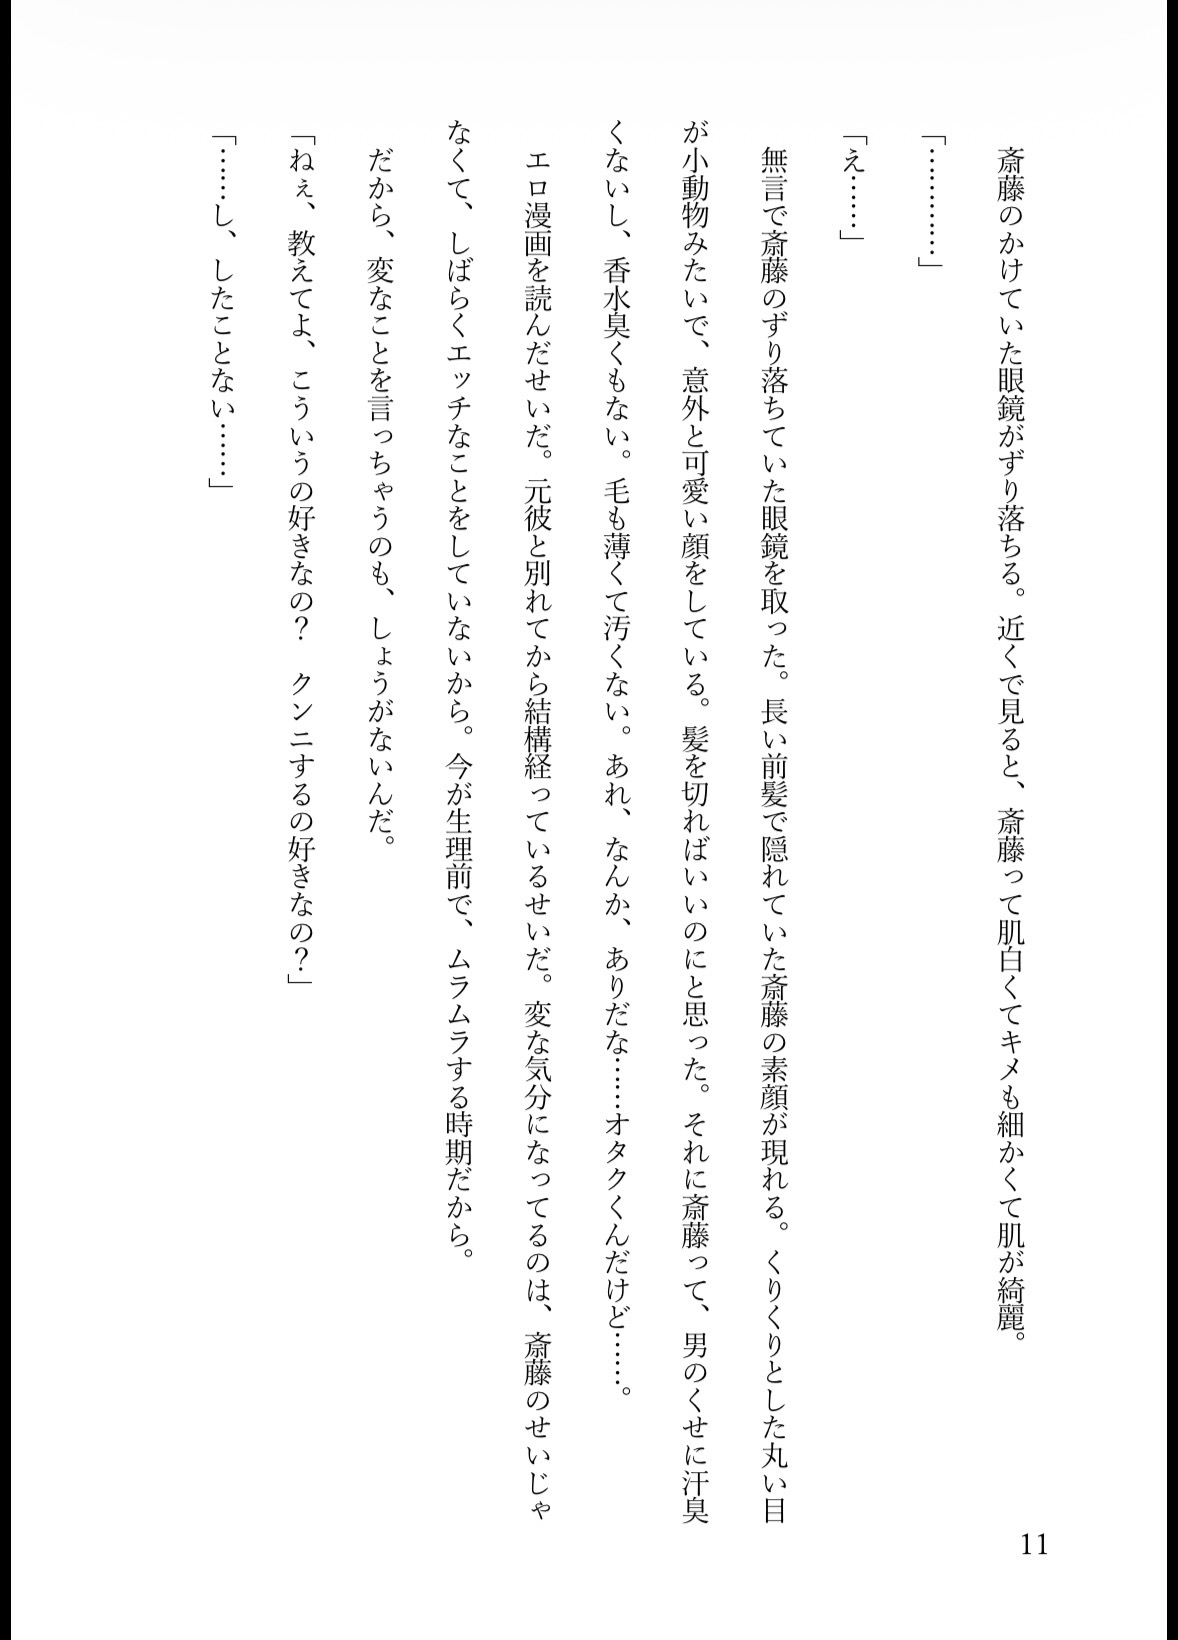 斎藤のかけていた眼鏡がずり落ちる。近くで見ると、斎藤って肌白くてキメも細かくて肌が綺麗。
「…………」
「え……」
無言で斎藤のずり落ちていた眼鏡を取った。長い前髪で隠れていた斎藤の素顔が現れる。くりくりとした丸い目
が小動物みたいで、意外と可愛い顔をしている。髪を切ればいいのにと思った。それに斎藤って、男のくせに汗臭
くないし、香水臭くもない。毛も薄くて汚くない。あれ、なんか、ありだな……オタクくんだけど……。
エロ漫画を読んだせいだ。元彼と別れてから結構経っているせいだ。変な気分になってるのは、斎藤のせいじゃ
なくて、しばらくエッチなことをしていないから。今が生理前で、ムラムラする時期だから。
だから、変なことを言っちゃうのも、しょうがないんだ。
「ねぇ、教えてよ、こういうの好きなの？　クンニするの好きなの？」
「……し、したことない……」
11